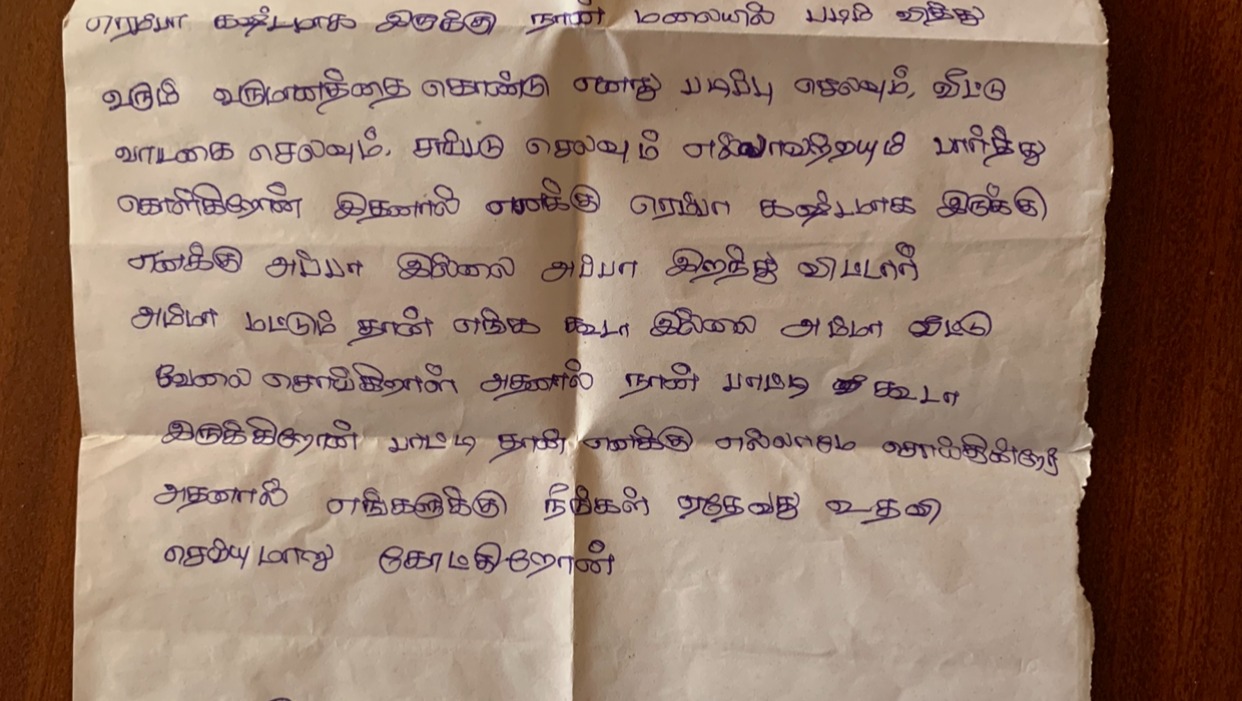 ரொம்பா கஷ்டமாக இருக்கு நான் மலையில்
வரும் வருமானத்தை கொண்டு எனது படிப்பு செலவும், வீட்டு
வாடகை செலவும், சாப்பாடு செலவும் எல்லாவற்றயும் பார்த்து
கொள்கிறேன் இதனால் எனக்கு ரொம்பா கஷ்டமாக இருக்கு
எனக்கு அப்பா இல்லை அப்பா இறந்து விட்டார்
அம்மா மட்டும் தான் எங்க கூடா இல்லை அம்மா வீட்டு
வேலை செய்கிறாள் அதனால் நான் பாட்டி கூடா
இருக்கிறேன் பாட்டி தான் எனக்கு எல்லாமே செய்கின்றர்
அதனால் எங்களுக்கு நீங்கள் ஏதேவது உதவி
செய்யுமாறு கேட்கிறேன்